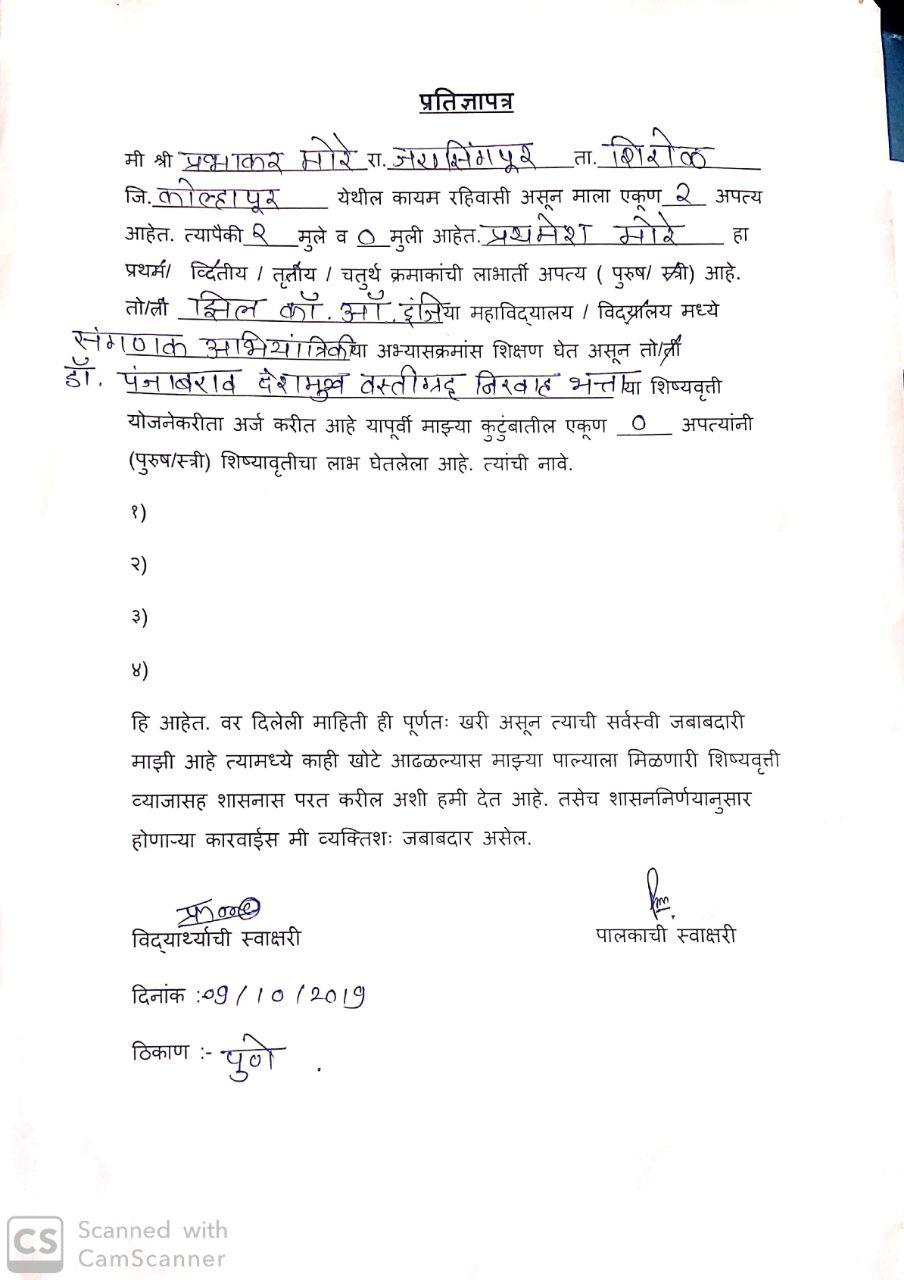 प्रतिज्ञापत्र
मी श्री प्रभाकर मोरे रा. जयसिंगपूर ता. शिरोळ
जि. कोल्हापूर येथील कायम रहिवासी असून माला एकूण २ अपत्य
आहेत. त्यापैकी २ मुले व ० मुली आहेत. प्रथमेश मोरे हा
प्रथम/ व्दितीय / तृतीय / चतुर्थ क्रमाकांची लाभार्ती अपत्य ( पुरुष/ स्त्री) आहे.
तो/ती झिल कॉ. ऑ. इंजि या महाविद्यालय / विद्यालय मध्ये
संगणक अभियांत्रिकी या अभ्यासक्रमांस शिक्षण घेत असून तो/ती
डॉ. पंजाबराव देशमुख वस्तीगृह निरवाह भत्ता या शिष्यवृत्ती
योजनेकरीता अर्ज करीत आहे यापूर्वी माझ्या कुटुंबातील एकूण ० अपत्यांनी
(पुरुष/स्त्री) शिष्यावृतीचा लाभ घेतलेला आहे. त्यांची नावे.
१)
२)
३)
४)
हि आहेत. वर दिलेली माहिती ही पूर्णतः खरी असून त्याची सर्वस्वी जबाबदारी
माझी आहे त्यामध्ये काही खोटे आढळल्यास माझ्या पाल्याला मिळणारी शिष्यवृत्ती
व्याजासह शासनास परत करील अशी हमी देत आहे. तसेच शासननिर्णयानुसार
होणाऱ्या कारवाईस मी व्यक्तिशः जबाबदार असेल.
विद्यार्थ्याची स्वाक्षरी पालकाची स्वाक्षरी
दिनांक :09/10/2019
ठिकाण :- पुणे .
CS Scanned with
CamScanner